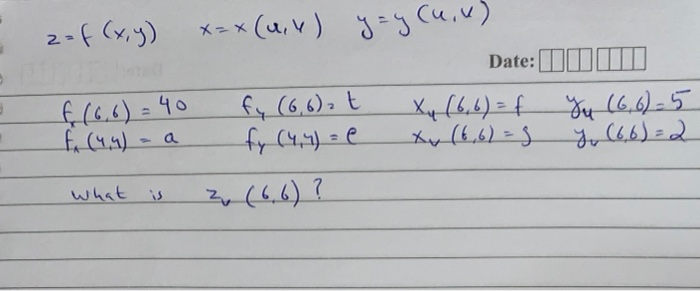 z=f(x,y) x=x(u,v) y=y(u,v)
Date:
fx(6,6) = 40 fy(6,6)= t xu(6,6)= f yu(6,6)=5
fx(4,4) = a fy(4,4) = e xv(6,6)=s yv(6,6)=2
what is zv (6,6)?